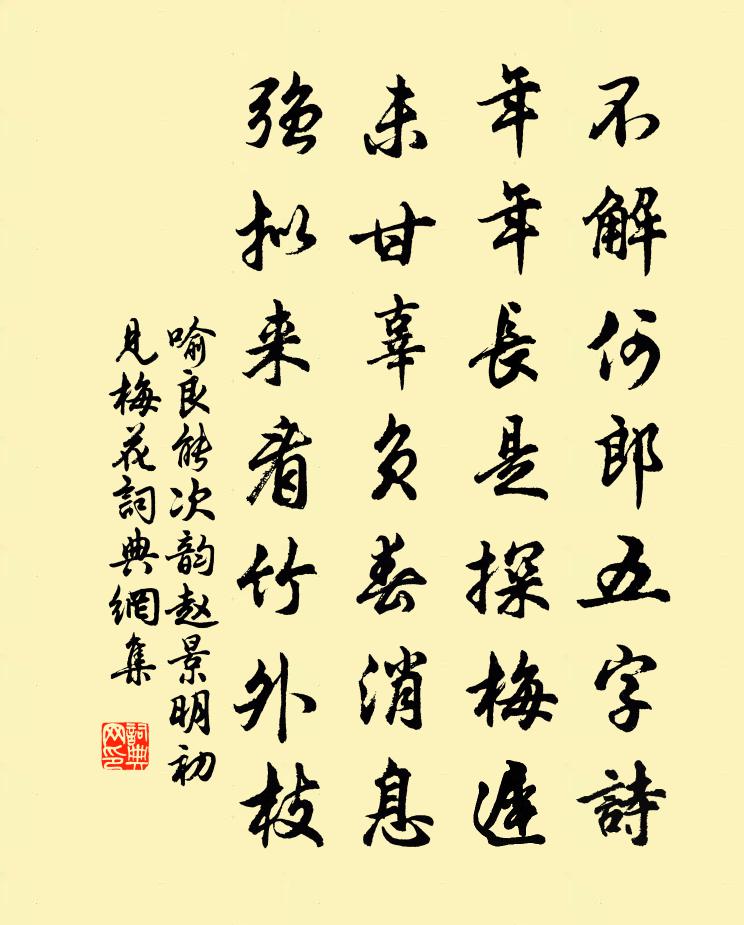 不解何郎五字詩
年年長是探梅遲
未甘辜负春消息
強拟来看竹外枝
喻良能次韵赵景明初
见梅花詞典網集
詞典
网印